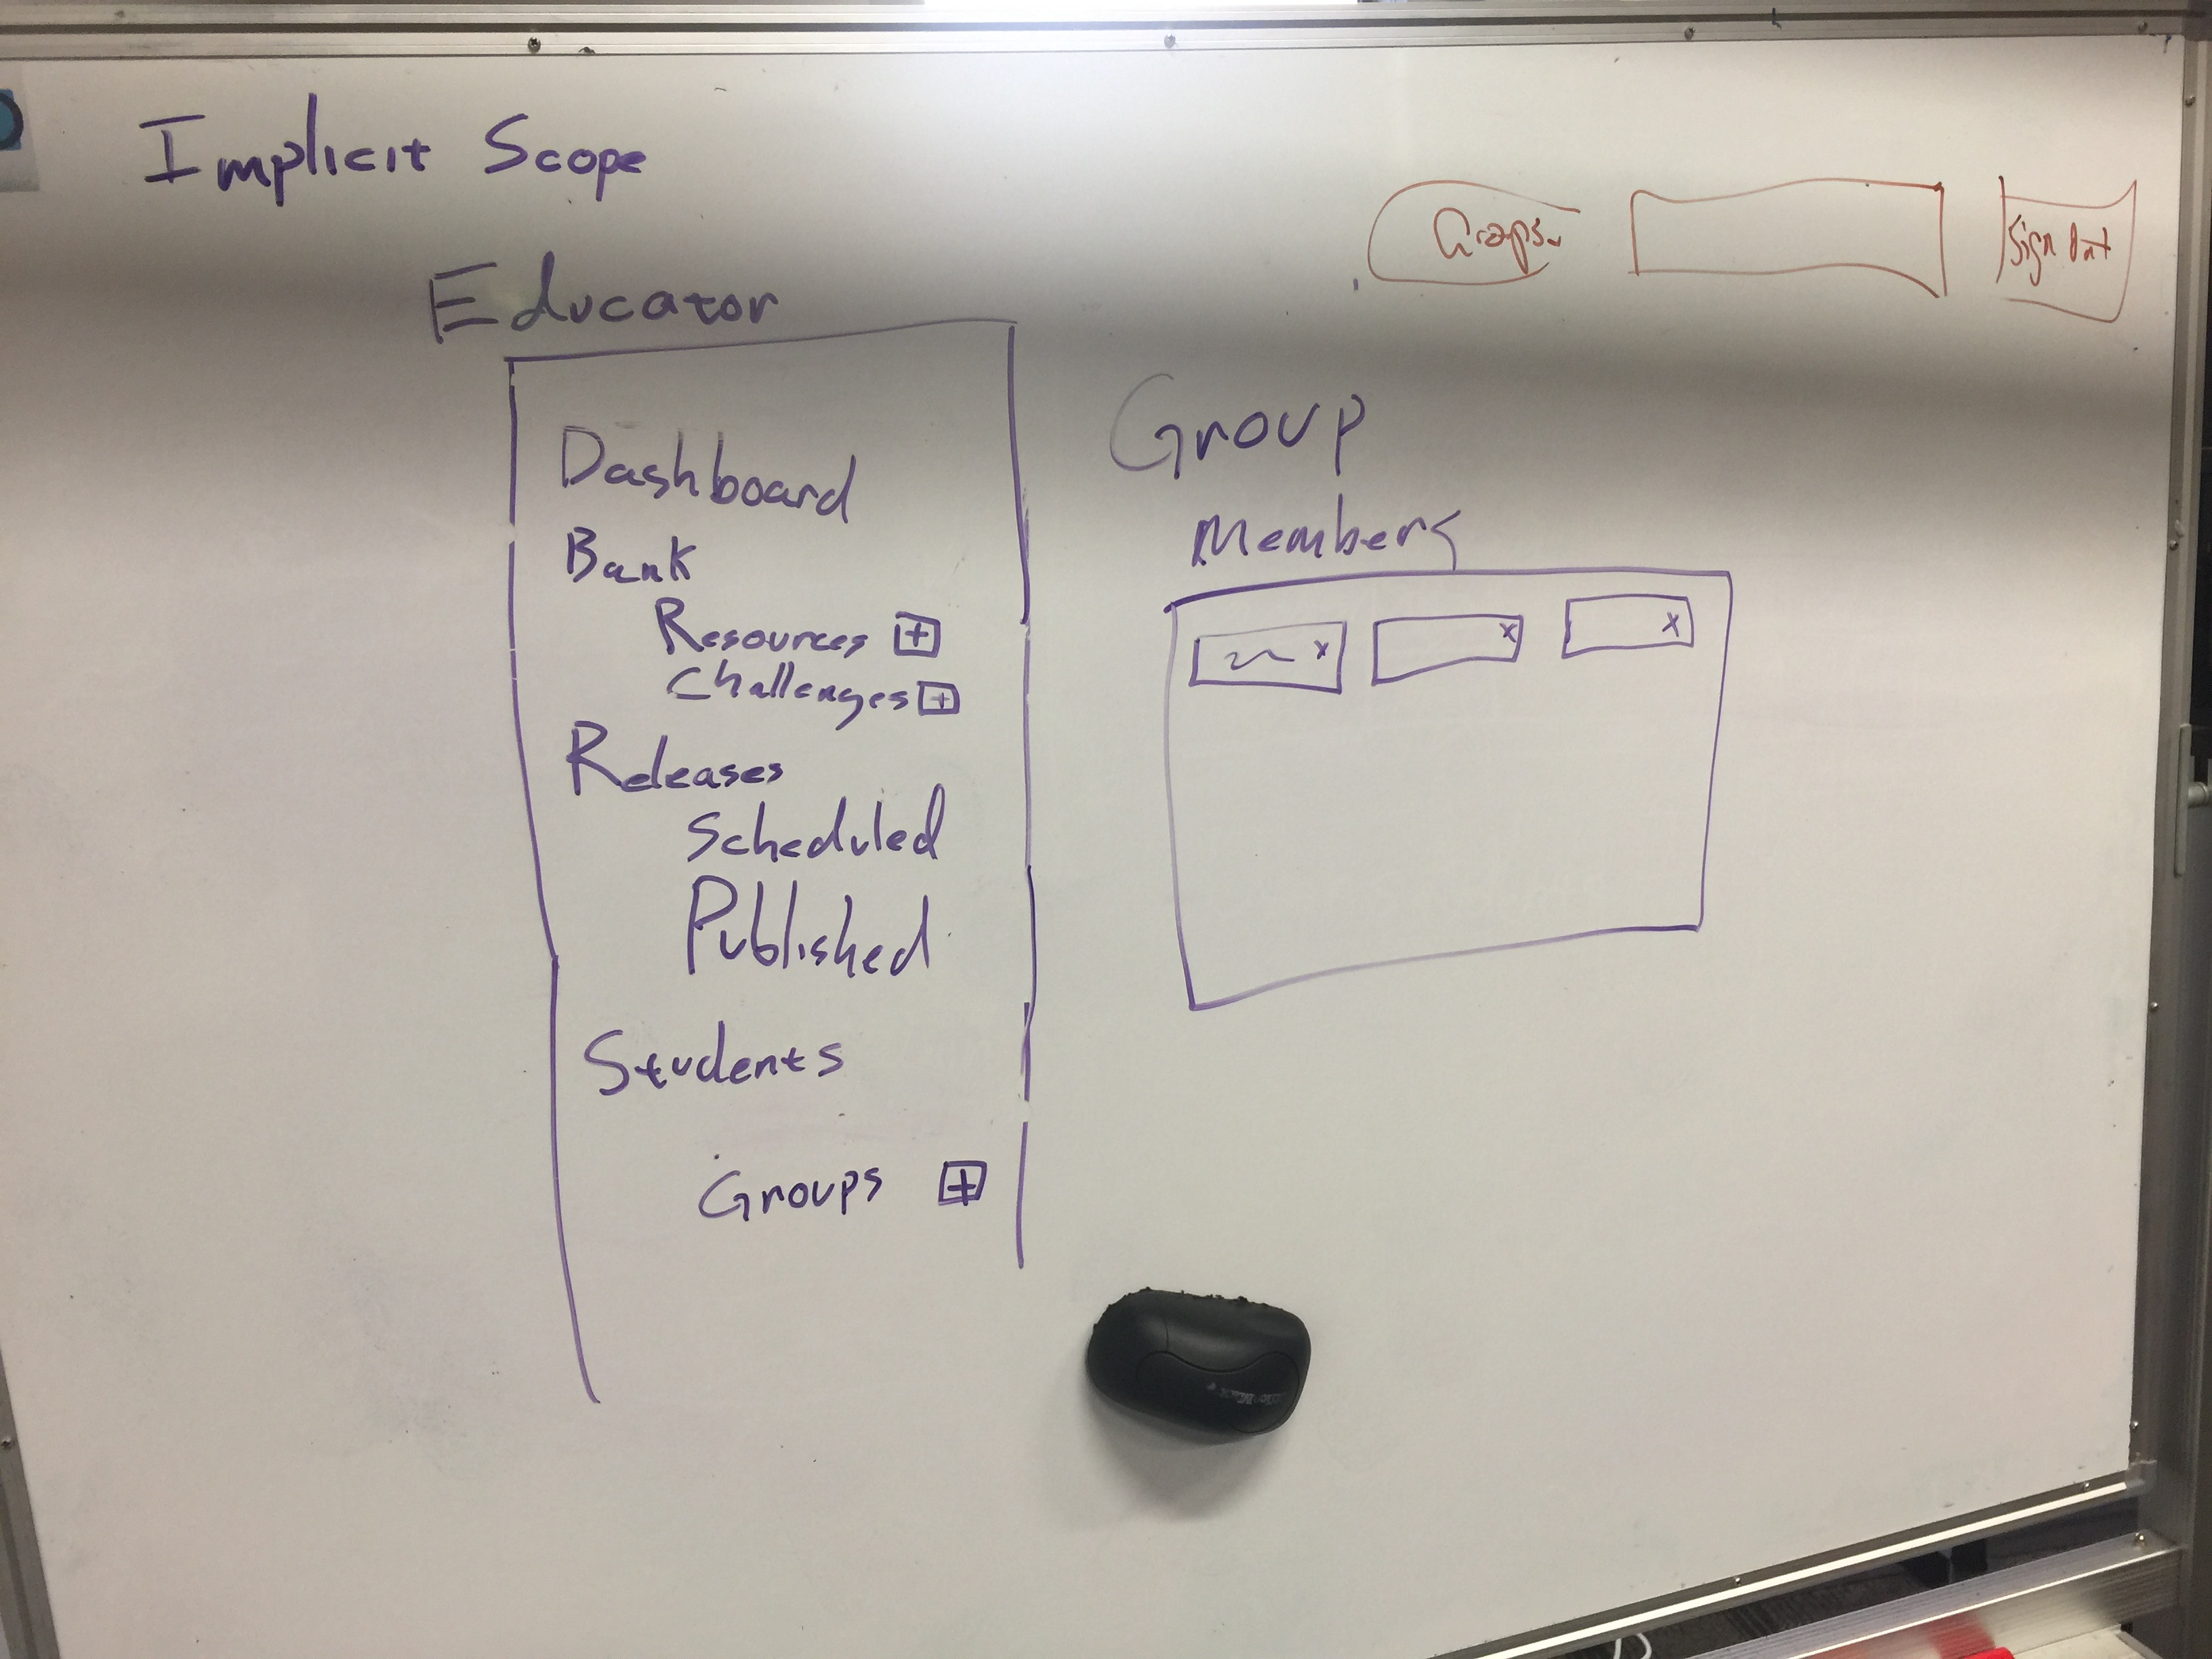 Implicit Scope
Groups
Sign Out
Educator
Dashboard
Bank
Resources +
Challenges +
Releases
Scheduled
Published
Students
Groups +
Group
Members
x x x